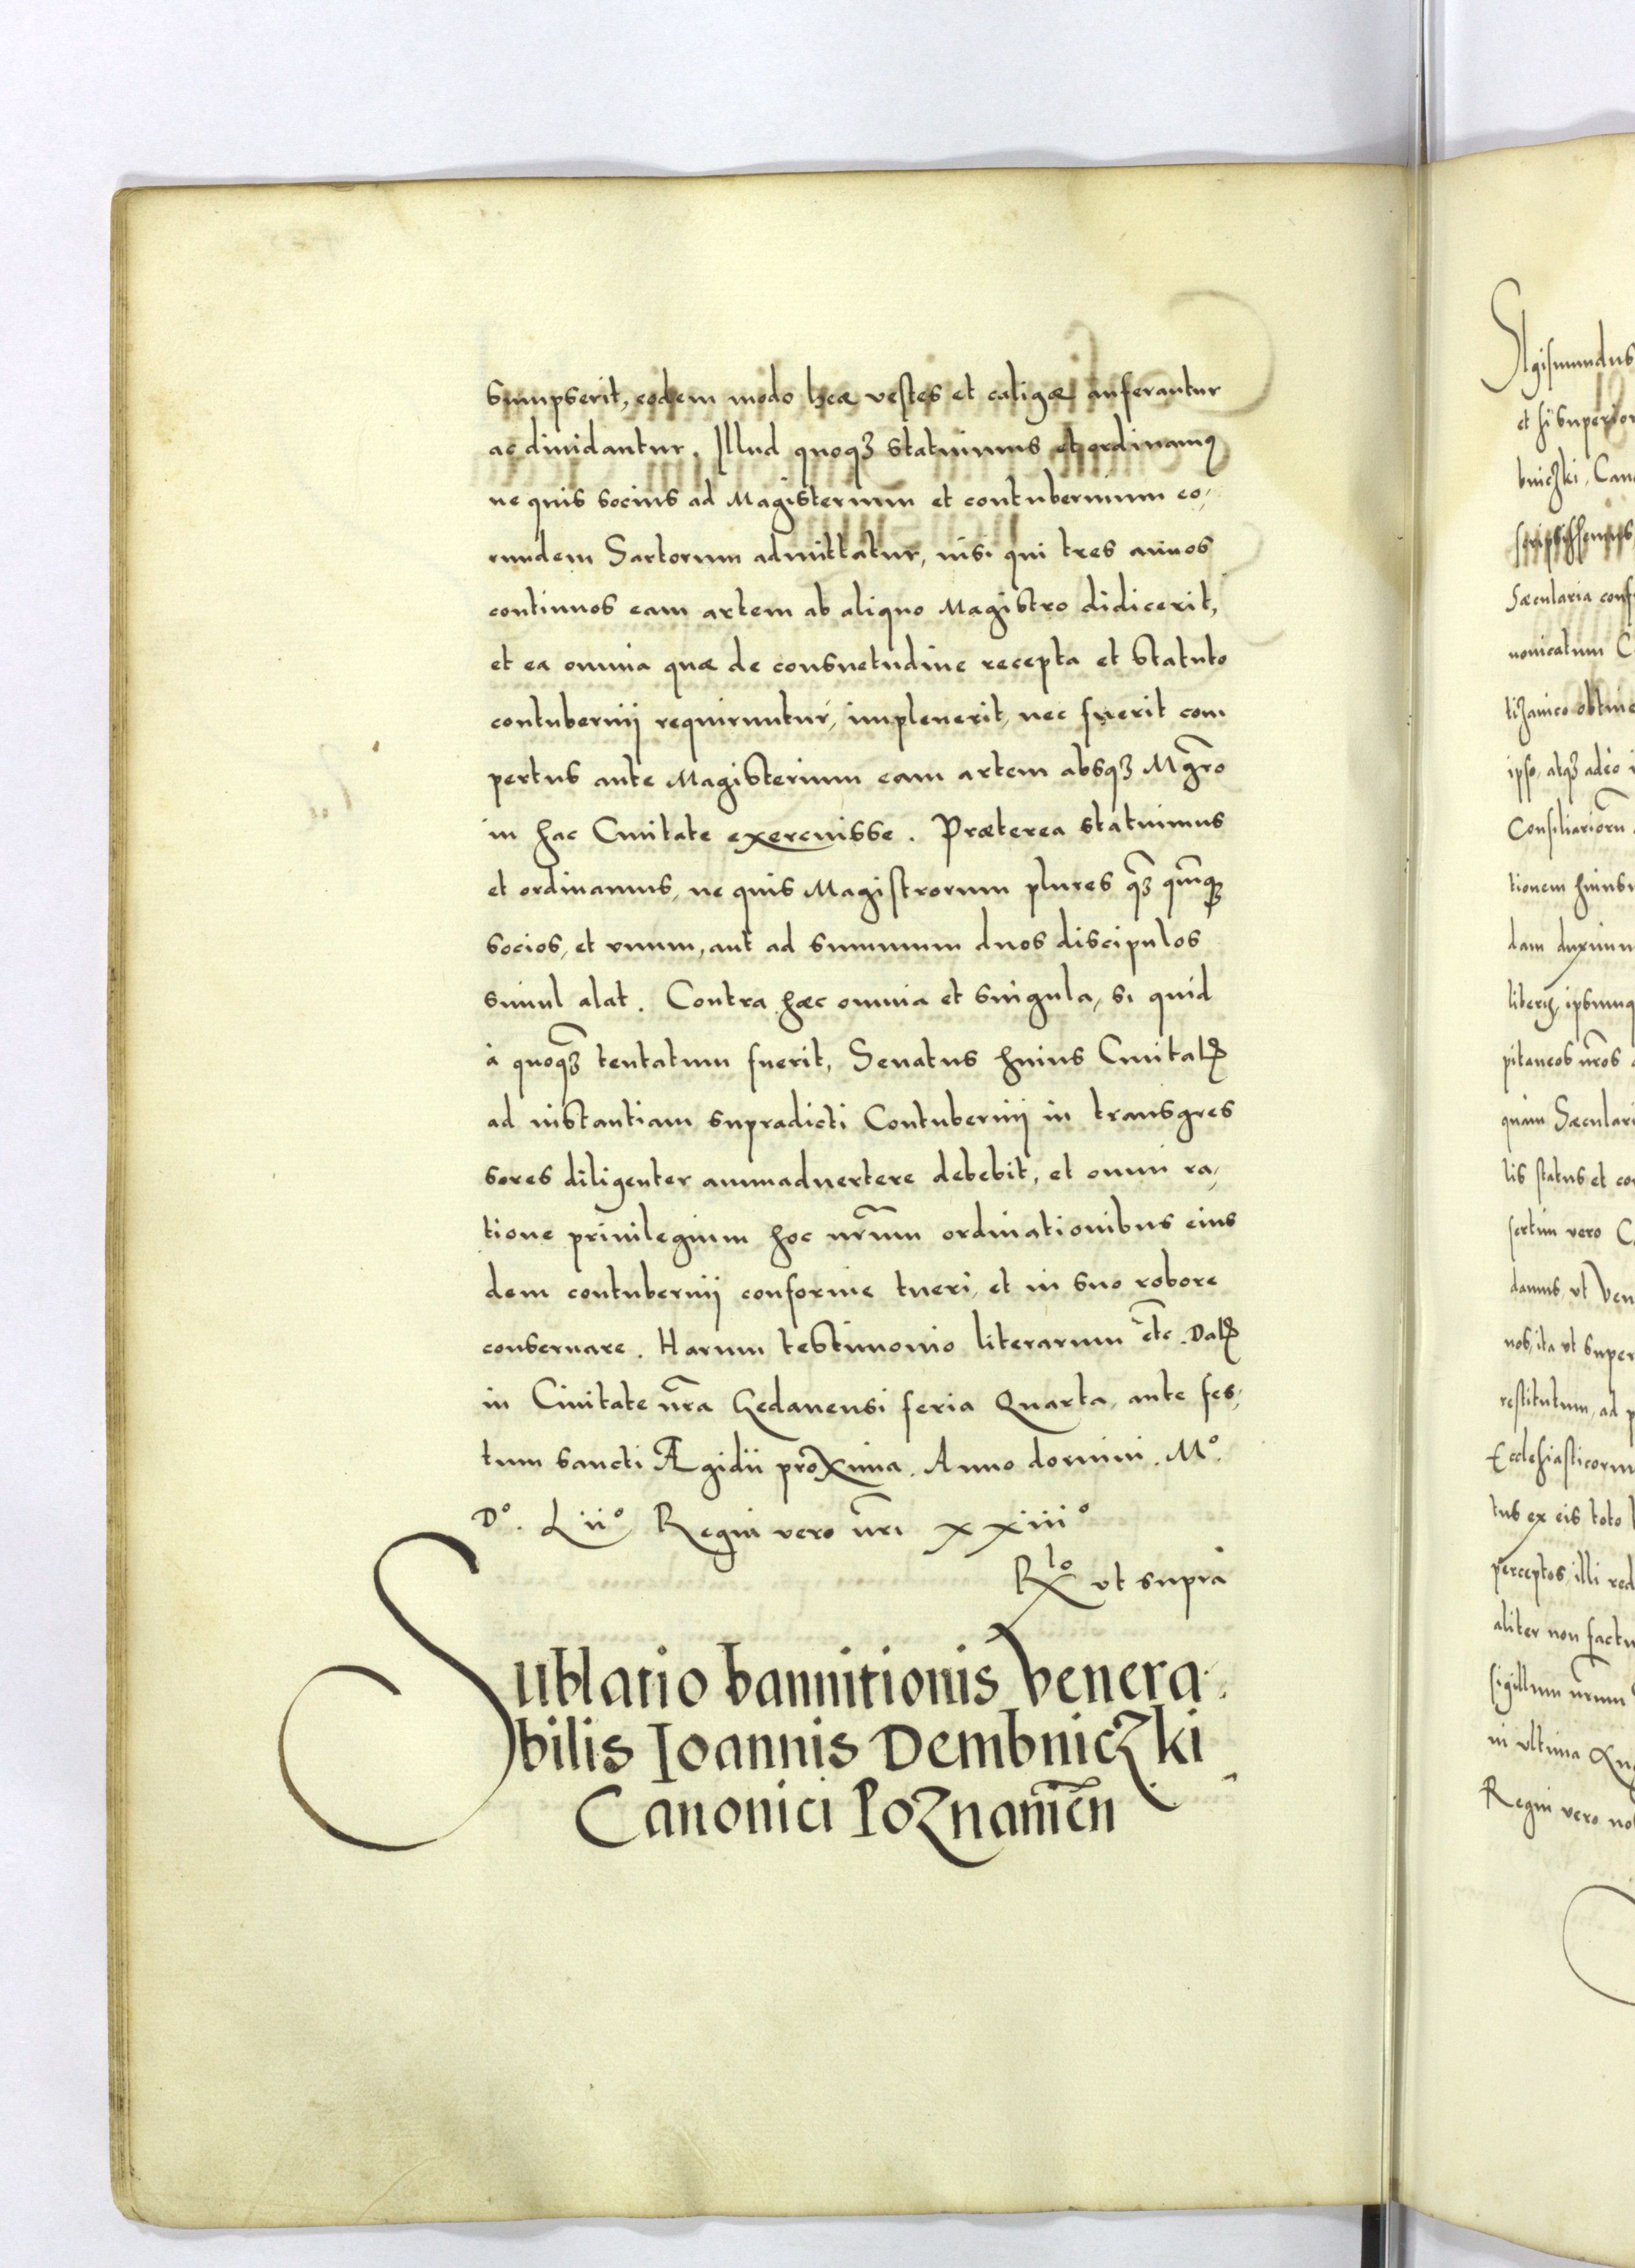 sumpserit, eodem modo hæ vestes et caligæ auferantur
ac diuidantur. Illud quoqꝫ statuimus et ordinamꝰ
ne quis socius ad Magisterium et contubernium eo,
rundem Sartorum admittatur, nisi qui tres annos
continuos eam artem ab aliquo Magistro didicerit,
et ea omnia quæ de consuetudine recepta et statuto
contubernij requiruntur, impleuerit, nec fuerit com
pertus ante Magisterium eam artem absqꝫ Mgr̃o
in hac Ciuitate exercuisse. Præterea statuimus
et ordinamus, ne quis Magistrorum plures q̃ꝫ quinqꝫ
socios, et vnum, aut ad summum duos discipulos
simul alat. Contra hæc omnia et singula, si quid
à quoq̃ꝫ tentatum fuerit, Senatus huius Ciuitatꝭ
ad instantiam supradicti Contubernij in transgres
sores diligenter animaduertere debebit, et omni ra,
tione priuilegium hoc nr̃um ordinationibus eius
dem contubernij conforme tueri, et in suo robore
conseruare. Harum testimonio literarum etc̃. Datꝭ
in Ciuitate nr̃a Gedanensi feria Quarta, ante fes,
tum sancti Ægidii proxima. Anno domini. Mº.
Dº. Liiº Regni vero nr̃i xxiiiº
Rˡº vt supra
Sublatio bannitionis Venera,
bilis Ioannis Dembniczki
Canonici Poznamẽn
Sigismundus
et si superior
bniczki, Can
scripsissemus
Sæcularia conf
nonicatum C
tizanico obtine
ipso, atqꝫ adeo i
Consiliarior̃u
tionem huius
dam duximu
pitaneos nr̃os
quàm Sæculari
lis status et co
sertim vero C
damus, vt Ven
nos, ita vt super
restitutum, ad p
Ecclesiasticorum
tus ex eis toto
perceptos, illi red
aliter non factu
sigillum nr̃um
in vltima Qu
Regni vero no